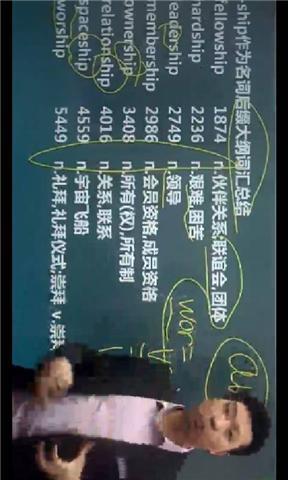 -ship作为名词后缀大纲词汇总结
fellowship 1874 n.伙伴关系,联谊会,团体
hardship 2236 n.艰难,困苦
leadership 2749 n.领导
membership 2986 n.会员资格,成员资格
ownership 3408 n.所有(权),所有制
relationship 4016 n.关系,联系
spaceship 4559 n.宇宙飞船
worship 5449 n.礼拜,礼拜仪式;崇拜 v.崇拜
wor=